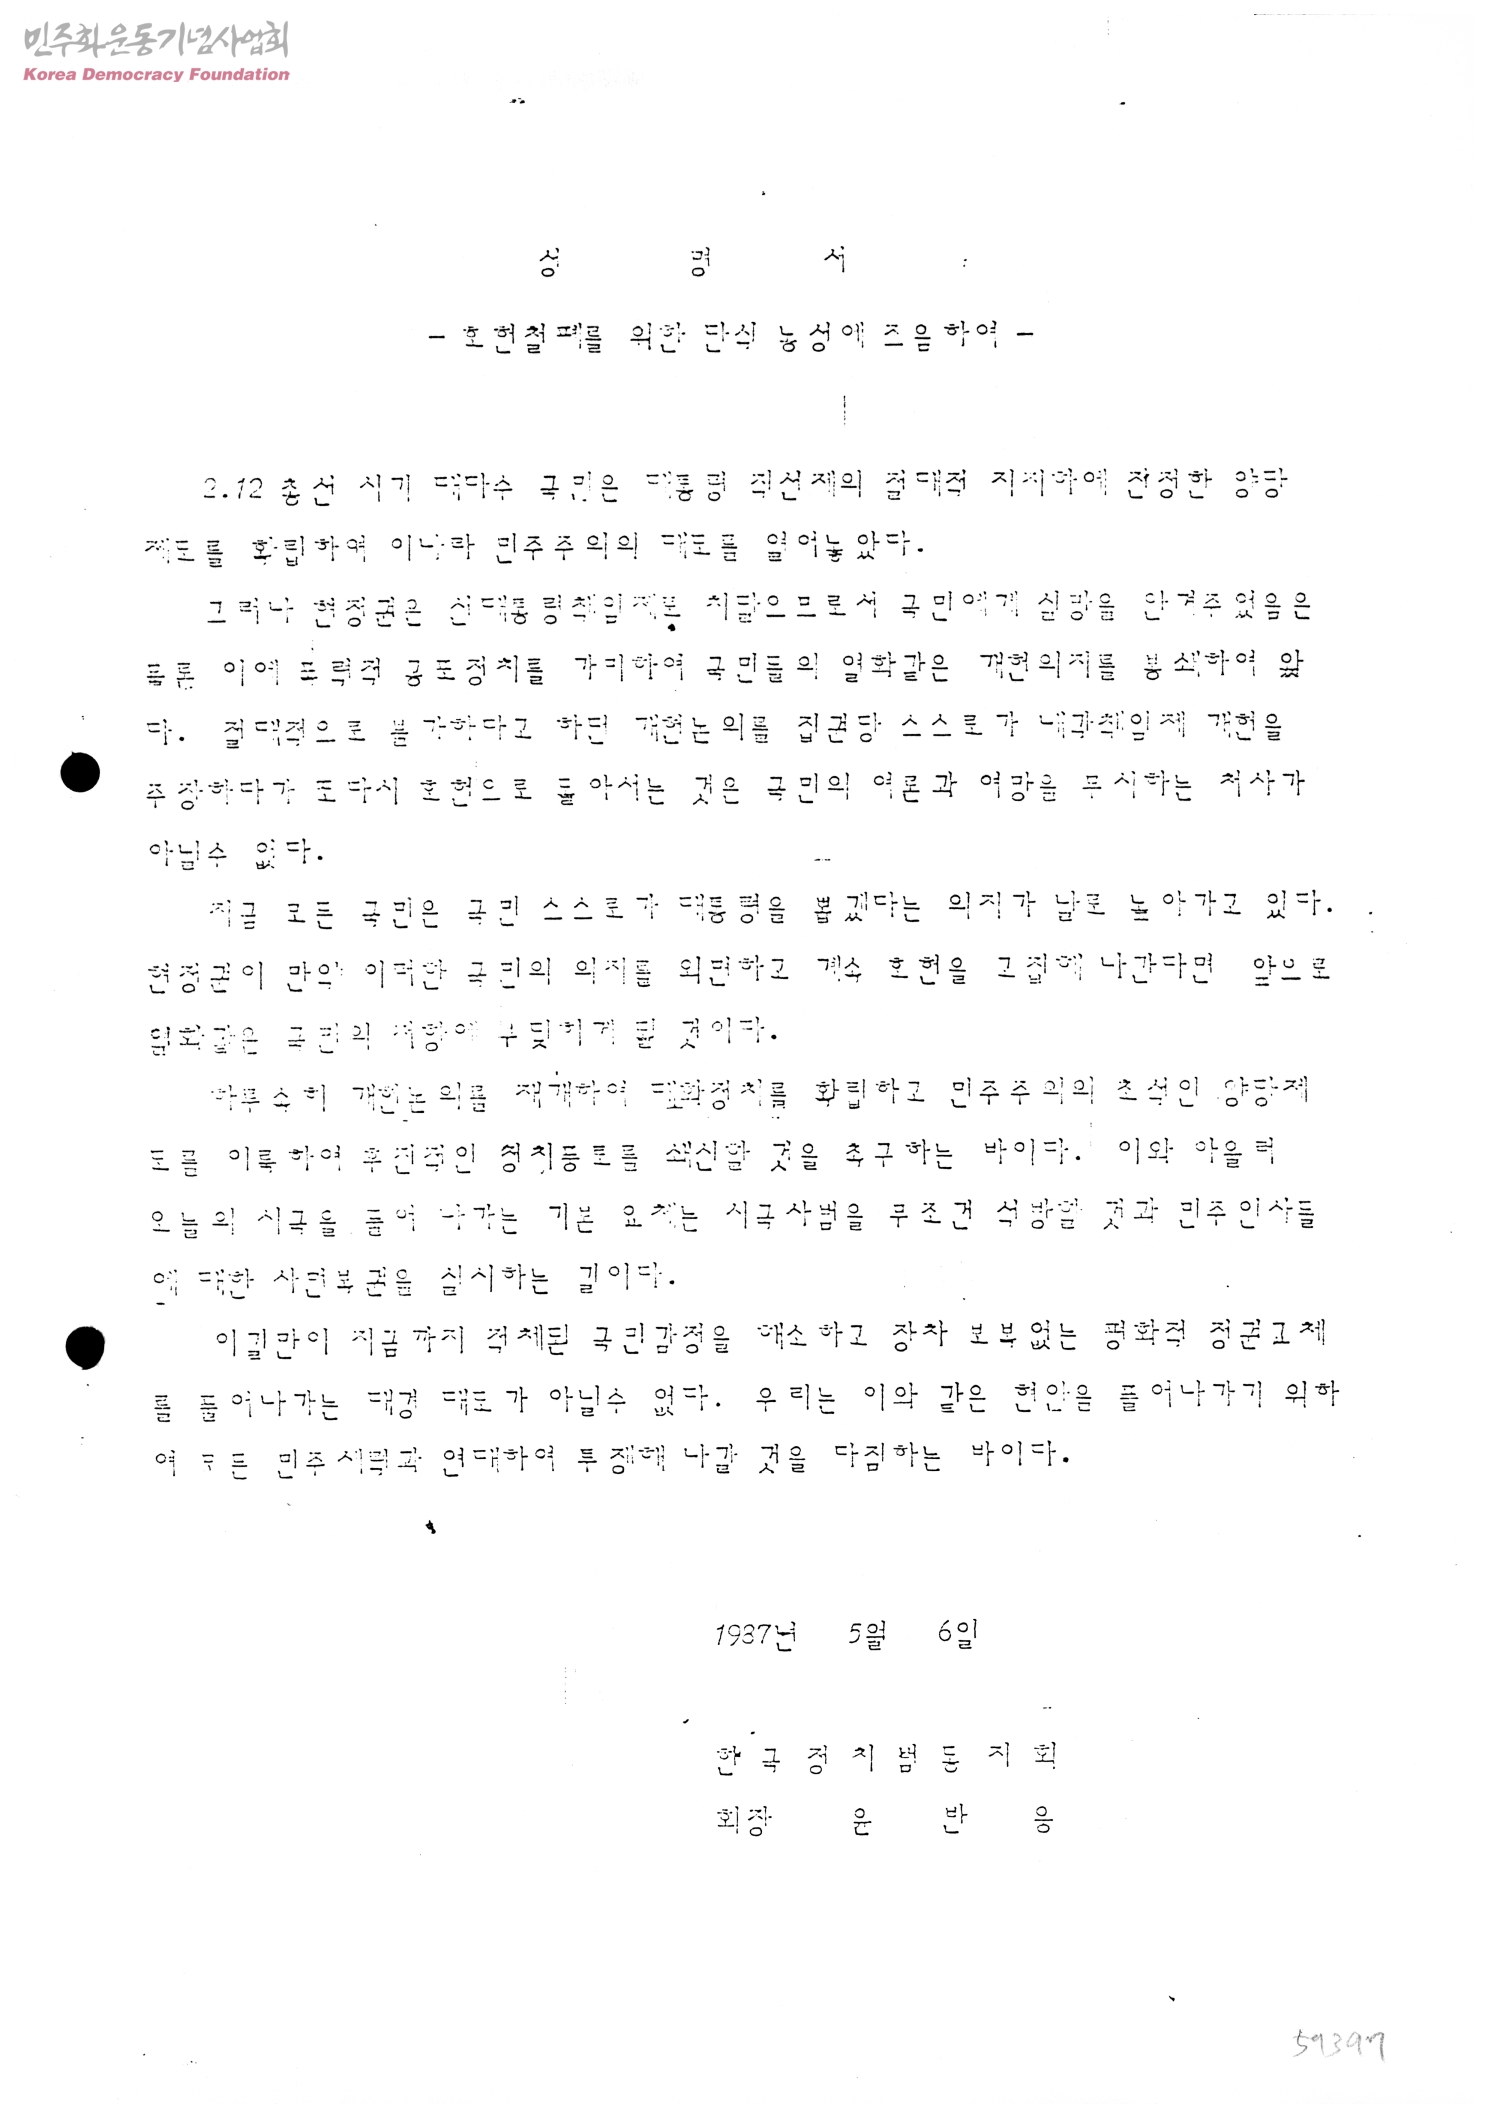 민주화운동기념사업회
Korea Democracy Foundation
성 명 서
- 호헌철폐를 위한 단식 농성에 즈음하여 -
2.12 총선 시기 대다수 국민은 대통령 직선제의 절대적 지지하에 진정한 양당
제도를 확립하여 이나라 민주주의의 대도를 열어놓았다.
그러나 현정권은 신대통령책임제로 치달으므로서 국민에게 실망을 안겨주었음은
물론 이에 폭력적 공포정치를 가미하여 국민들의 열화같은 개헌의지를 봉쇄하여 왔
다. 절대적으로 불가하다고 하던 개헌논의를 집권당 스스로가 내각책임제 개헌을
주장하다가 또다시 호헌으로 돌아서는 것은 국민의 여론과 여망을 무시하는 처사가
아닐수 없다.
지금 모든 국민은 국민 스스로가 대통령을 뽑겠다는 의지가 날로 높아가고 있다.
현정권이 만약 이러한 국민의 의지를 외면하고 계속 호헌을 고집해 나간다면 앞으로
열화같은 국민의 저항에 부딪히게 될 것이다.
하루속히 개헌논의를 재개하여 대화정치를 확립하고 민주주의의 초석인 양당제
도를 이룩하여 후진적인 정치풍토를 쇄신할 것을 촉구하는 바이다. 이와 아울러
오늘의 시국을 풀어 나가는 기본 요체는 시국사범을 무조건 석방할 것과 민주인사들
에 대한 사면복권을 실시하는 길이다.
이길만이 지금까지 적체된 국민감정을 해소하고 장차 보복없는 평화적 정권교체
를 풀어나가는 대경 대도가 아닐수 없다. 우리는 이와 같은 현안을 풀어나가기 위하
여 모든 민주세력과 연대하여 투쟁해 나갈 것을 다짐하는 바이다.
1987년 5월 6일
한국정치범동지회
회장 윤 반 웅
59397